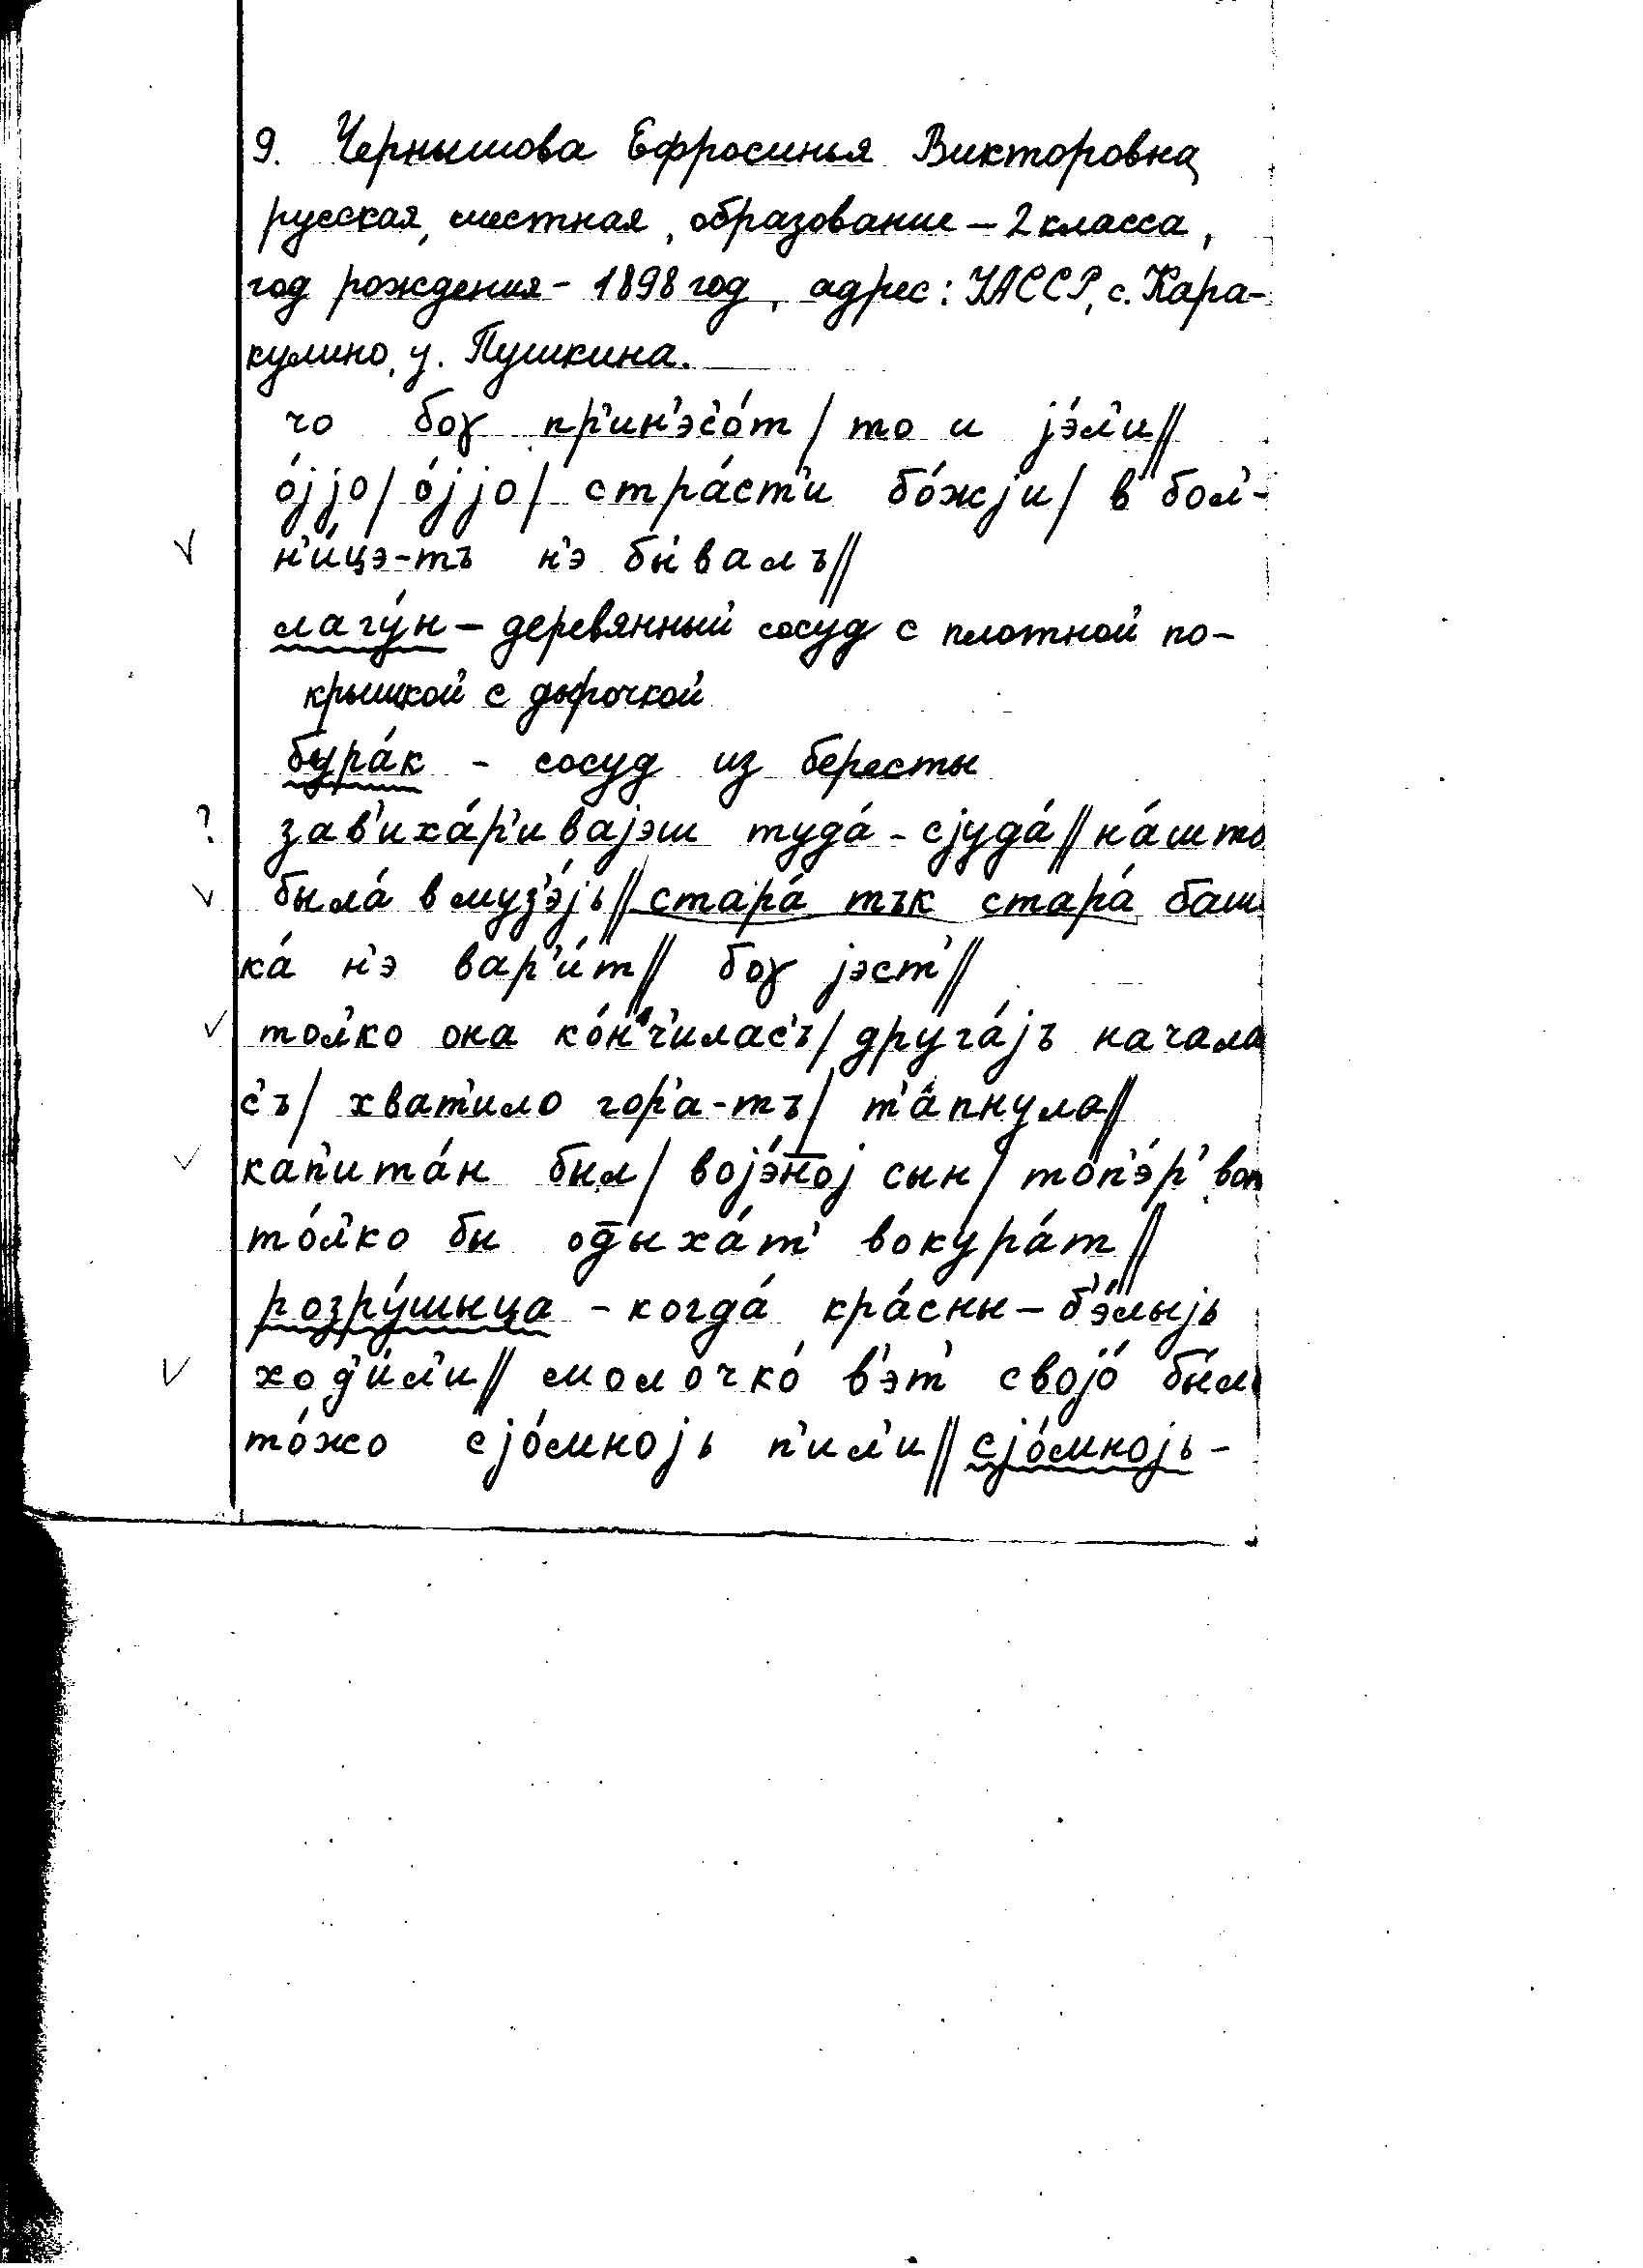 9. Чернышова Ефросинья Викторовна,
русская, местная, образование – 2 класса,
год рождения – 1898 год, адрес: УАССР, с. Кара-
кулино, у. Пушкина.
чо боɣ пр'ин'эс'о́т / то и jэ́л'и //
о́jjо / о́jjо / стра́ст'и бо́жjи / в бол'-
н'и́цэ-тъ н'э бы́валъ //
лагу́н – деревянный сосуд с плотной по-
крышкой с дырочкой
бура́к – сосуд из бересты
? зав'иха́р'иваjэш туда́ - сjуда́ // на́што
была́ в муз'э́jь // стара́ тък стара́ баш
ка́ н'э вар'и́т // боɣ jэст' //
тол'ко она ко́н'ч'илас'ъ / друга́jъ начала
с'ъ / хват'ило гор'а-тъ / т'а́пнула //
кап'ита́н был / воjэ́н̅оj сын / топ'э́р' вот
то́л'ко бы од̅ыха́т' вокура́т //
розру́шыца – когда́ кра́сны – б'э́лыjь
ход'и́л'и // молочко́ в'эт' своjо́ бы́л
то́жо сjо́мноjь п'ил'и // сjо́мноjь –